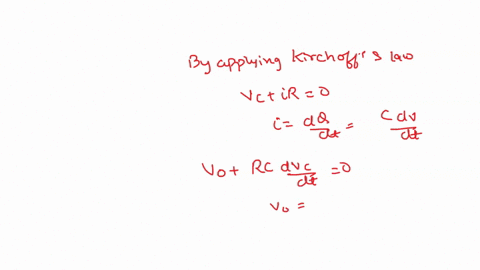 By applying Kirchoff's law
Vc + iR = 0
i = dQ/dt = C dv/dt
Vo + RC dvc/dt = 0
Vo =